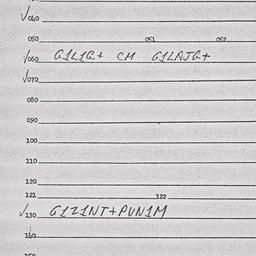 √040
050 051 052
√060 G1L1G+ CM G1LAJG+
√070
080
090
100
110
120
121 122
√130 G1Z1NT+PUN1M
140
150